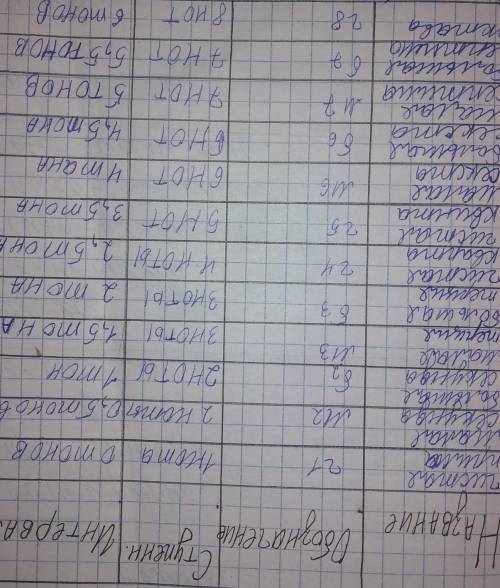 Название Обозначение Ступени. Интерва
чистая прима ч1 1 нота 0 тонов
малая секунда м2 2 ноты 0,5 тонов
большая секунда б2 2 ноты 1 тон
малая терция м3 3 ноты 1,5 тона
большая терция б3 3 ноты 2 тона
чистая кварта ч4 4 ноты 2,5 тона
чистая квинта ч5 5 нот 3,5 тона
малая секста м6 6 нот 4 тона
большая секста б6 6 нот 4,5 тона
малая септима м7 7 нот 5 тонов
большая септима б7 7 нот 5,5 тонов
ктава ч8 8 нот 6 тонов